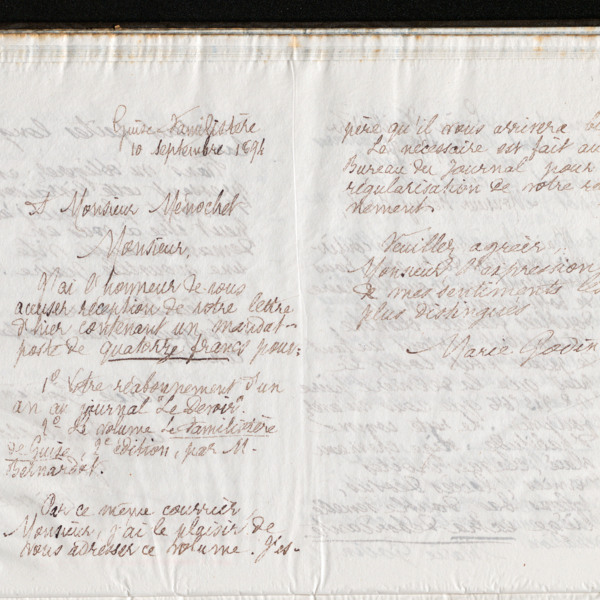 Guise-Familistère
10 septembre 1894
A Monsieur Ménochet
Monsieur,
J'ai l'honneur de vous
accuser réception de votre lettre
d'hier contenant un mandat-
poste de quatorze francs pour:
1° Votre réabonnement d'un
an au journal "Le Devoir".
2° Le volume Le Familistère
de Guise, 2e édition, par M.
Bernardot.
Par ce même courrier,
Monsieur, j'ai le plaisir de
vous adresser ce volume. J'es-
père qu'il vous arrivera
Le nécessaire est fait au
Bureau du Journal pour
régularisation de votre
nement.
Veuillez agréer
Monsieur l'expression
de mes sentiments les
plus distingués
Marie Godin